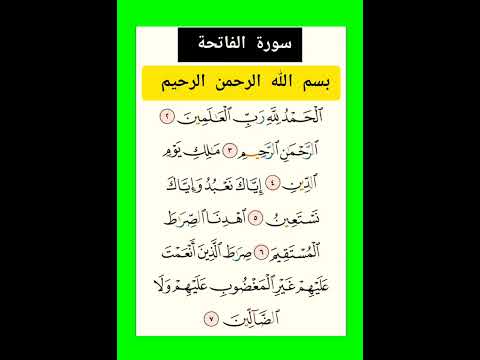 سورة الفاتحة
بسم الله الرحمن الرحيم
ٱلْحَمْدُ لِلَّهِ رَبِّ ٱلْعَـٰلَمِينَ ٢
ٱلرَّحْمَـٰنِ ٱلرَّحِيمِ ٣ مَـٰلِكِ يَوْمِ
ٱلدِّينِ ٤ إِيَّاكَ نَعْبُدُ وَإِيَّاكَ
نَسْتَعِينُ ٥ ٱهْدِنَا ٱلصِّرَٰطَ
ٱلْمُسْتَقِيمَ ٦ صِرَٰطَ ٱلَّذِينَ أَنْعَمْتَ
عَلَيْهِمْ غَيْرِ ٱلْمَغْضُوبِ عَلَيْهِمْ وَلَا
ٱلضَّآلِّينَ ٧